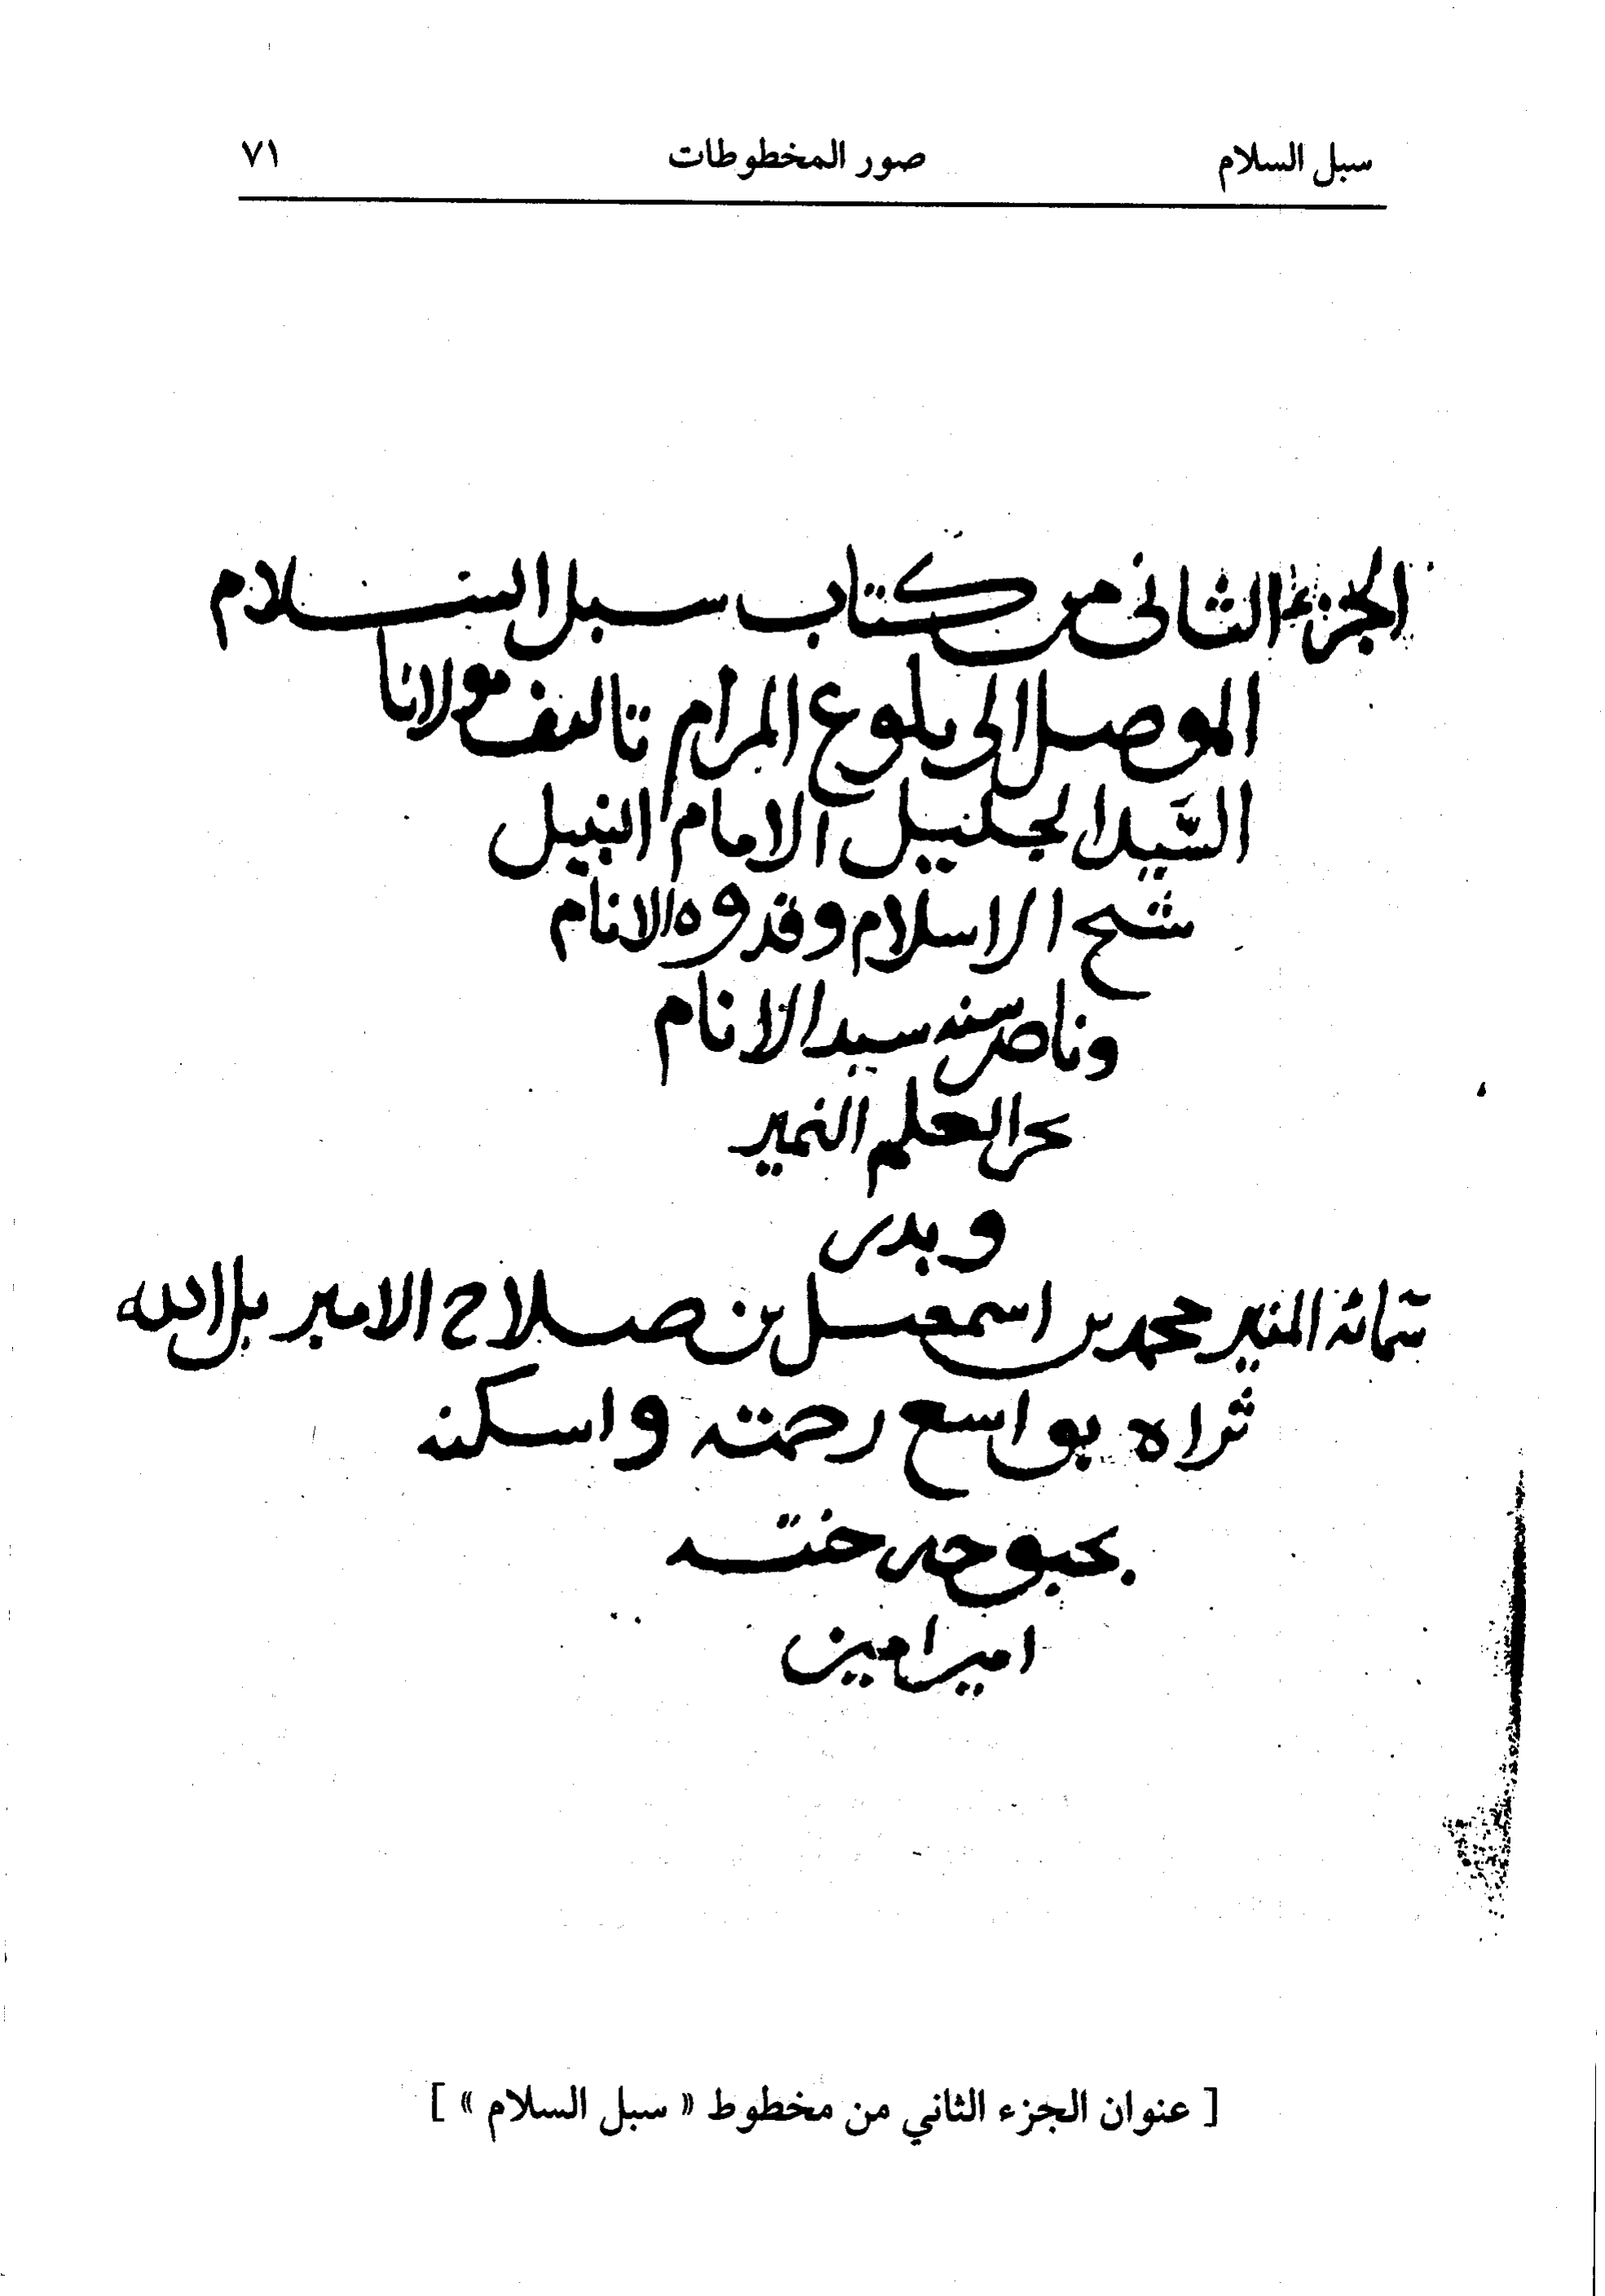 سبل السلام صور المخطوطات ٧١
الجزء الثاني من كتاب سبل السلام
الموصل الى بلوغ المرام تاليف مولانا
السَّيد الجليل الامام النبيل
شيخ الاسلام وقدوه الانام
وناصر سنه سيد الانام
بحر العلم النمير
وبدر
سمائه المنير محمد بن اسمعيل بن صلاح الامير بل الله
ثراه بواسع رحمته واسكنه
بحبوحه جنته
امين امين
[ عنوان الجزء الثاني من مخطوط « سبل السلام » ]